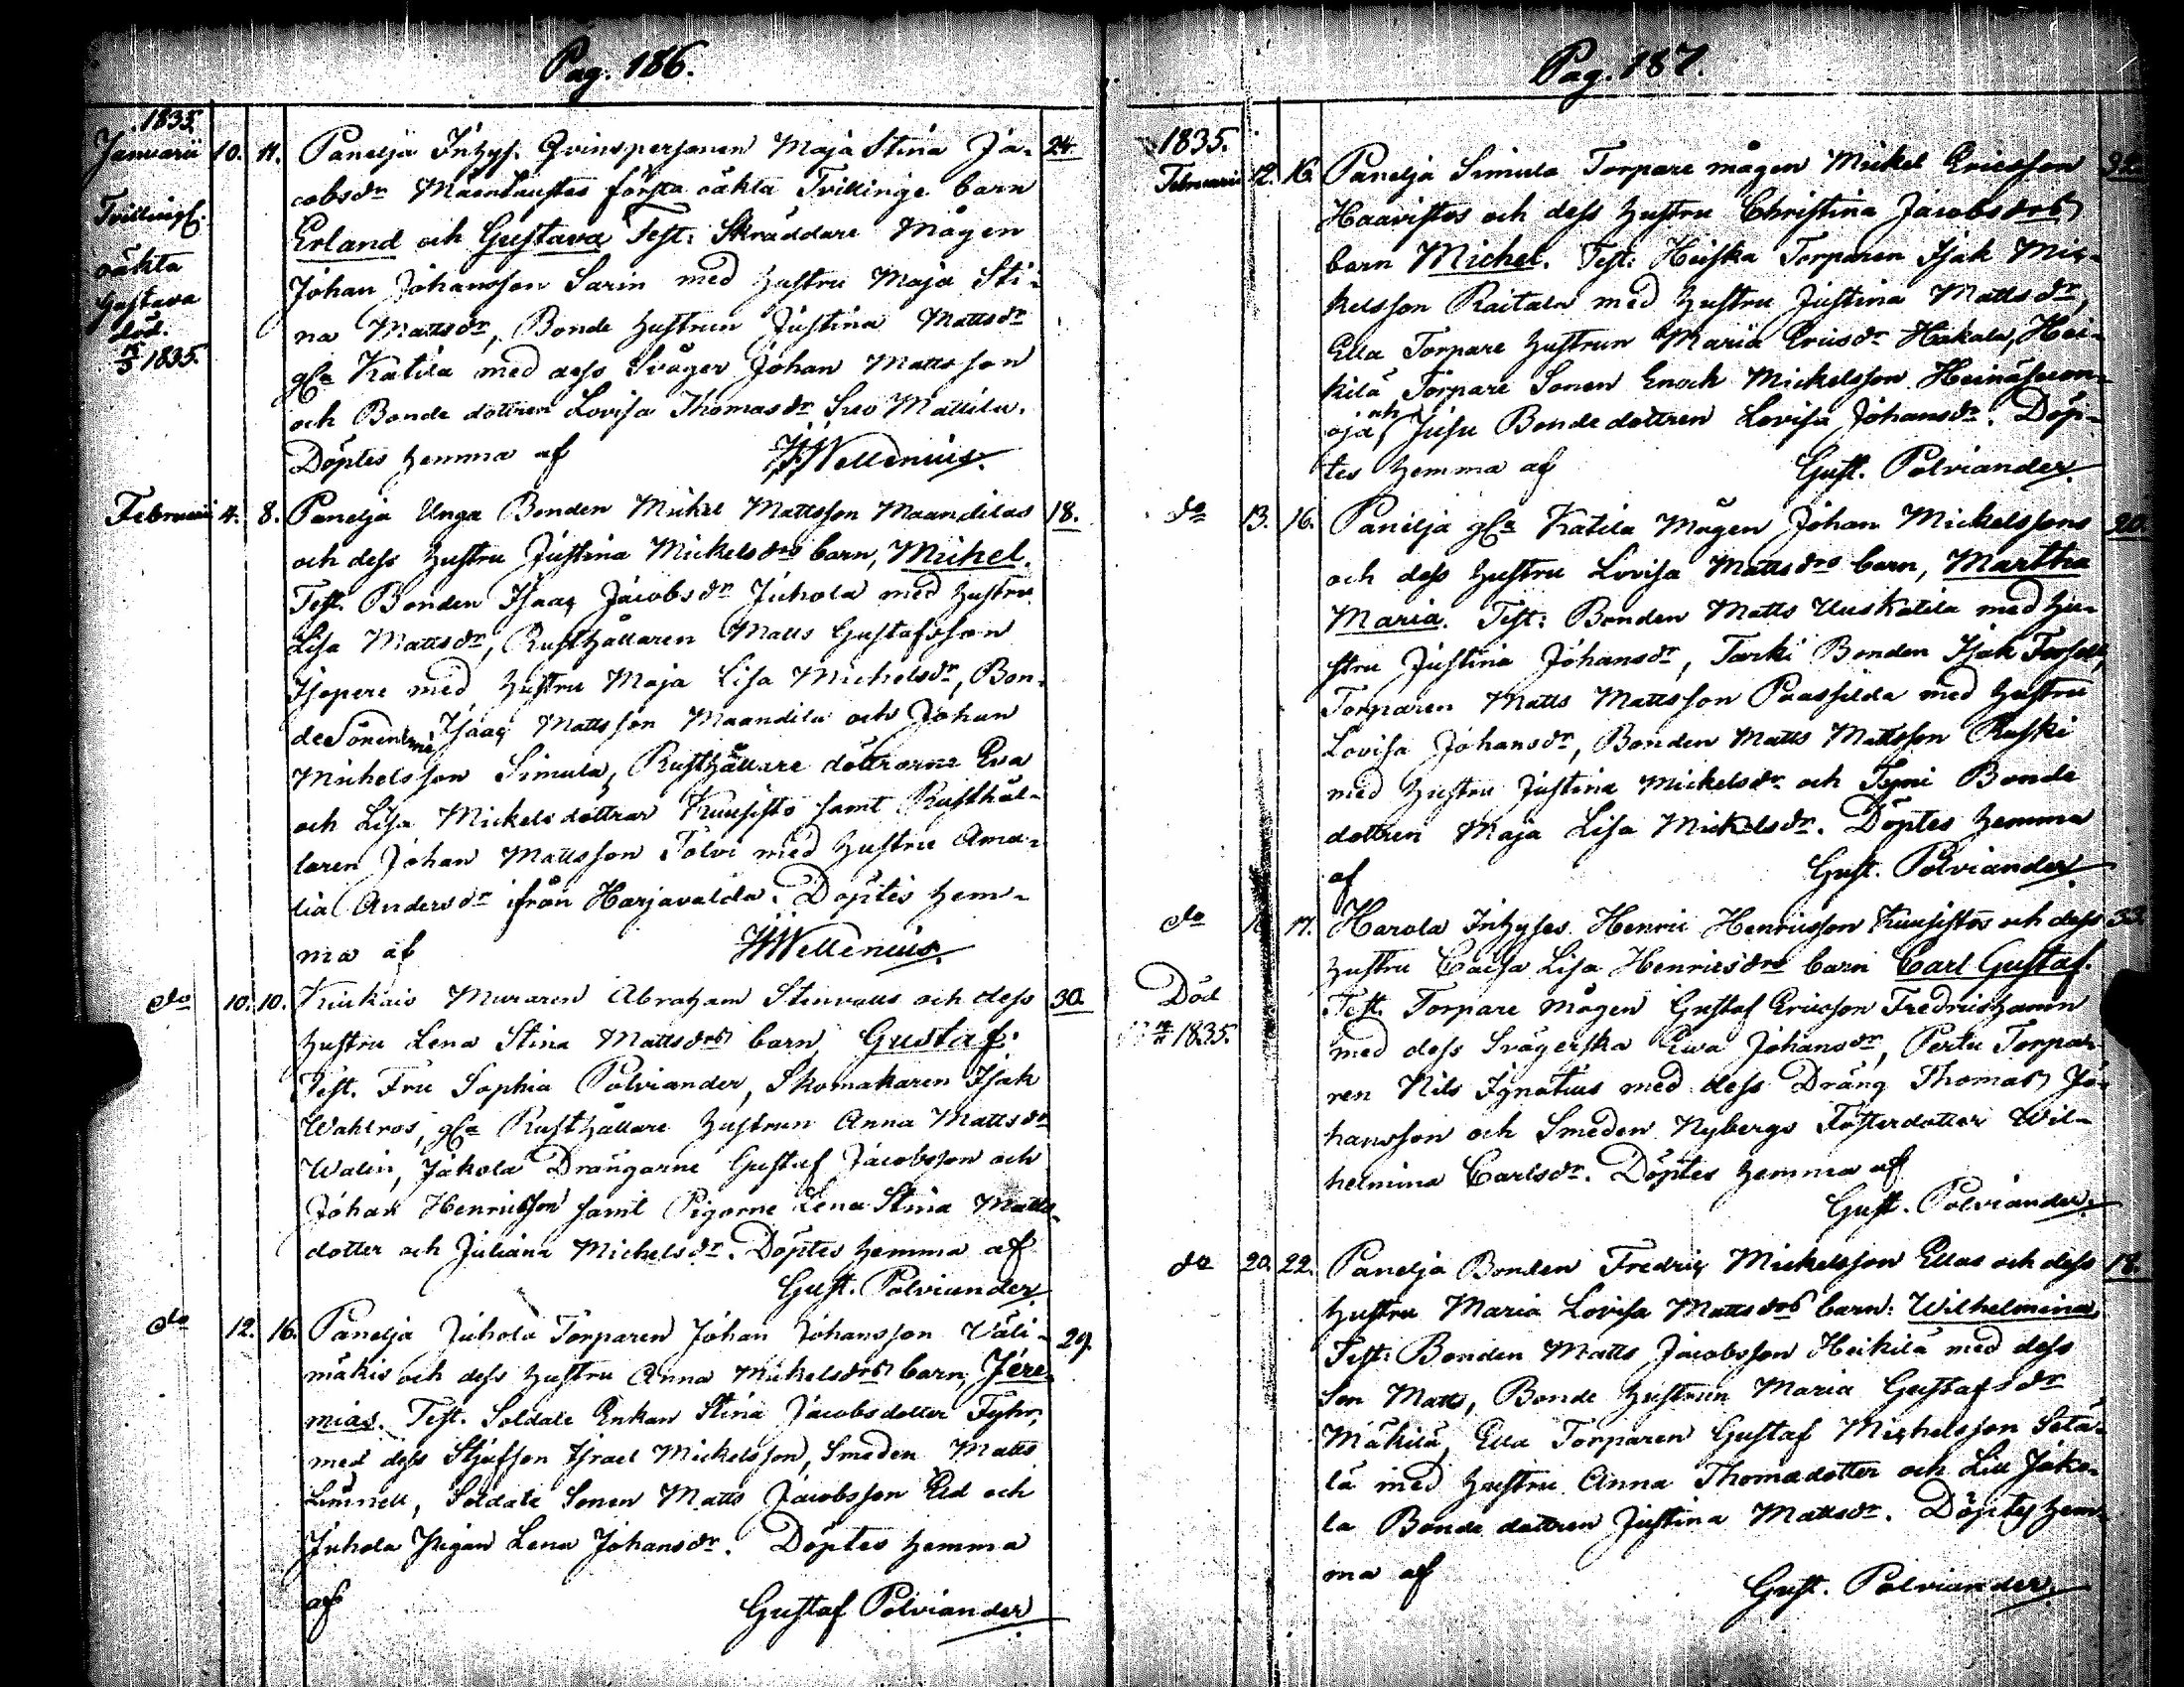 Pag. 186.
1835.
Januarii 10. 11. Panelja Inhys. Qvinspersonen Maja Stina Ja- 24.
cobsdr Mäenlaustas första oäkta Tvillinge barn
Tvillingf.
oäkta
Erland och Gustava Test: Skräddare Mågen
Gustava
död.
1835.
Johan Johansson Sarin med hustru Maja Sti-
na Mattsdr, Bonde hustrun Justina Mattsdr
gla Katila med dess Svåger Johan Mattsson
och Bonde dottren Lovisa Thomasdr Mattila.
Döptes hemma af Wellenius.
Februarii 4. 8. Panelja Unga Bonden Mickel Mattsson Maandilas 18.
och dess hustru Justina Mickelsdrs barn, Michel.
Test. Bonden Isaac Jacobsdr Juhola med hustru
Lisa Mattsdr, Rusthållaren Matts Gustafsson
Isopere med hustru Maja Lisa Michelsdr, Bon-
de Sönerne Isaac Mattsson Maandila och Johan
Michelsson Simula, Rusthållare döttrarne Eva
och Lisa Mickelsdottrar Kuusisto samt Rusthål-
laren Johan Mattsson Tolvi med hustru Ama-
lia Andersdr ifrån Harjavalda. Döptes hem-
ma af Wellenius.
do 10. 10. Kiukais Muraren Abraham Stenvalls och dess 30.
hustru Lena Stina Mattsdrs barn, Gustaf.
Test. Fru Sophia Polviander, Skomakaren Isak
Wahlros, gla Rusthållare hustrun Anna Mattsdr
Walin, Jakola Drängarne Gustaf Jacobsson och
Johan Henricsson samt Pigorne Lena Stina Matts-
dotter och Juliana Michelsdr. Döptes hemma af
Gust. Polviander
do 12. 16. Panelja Juhola Torparen Johan Johansson Väli- 29.
mäkis och dess hustru Anna Mickelsdrs barn, Jere-
mias. Test. Soldate Enkan Stina Jacobsdotter Fyhr,
med dess Stjufson Israel Mickelsson, Smeden Matts
Linnell, Soldate Sonen Matts Jacobsson Eld och
Juhola Pigan Lena Johansdr. Döptes hemma
af Gustaf Polviander
Pag. 187.
1835.
Februarii 12. 16. Panelja Simula Torpare mågen Mickel Ericsson
Haavistos och dess hustru Christina Jacobsdrs
barn Michel. Test: Heiska Torparen Isak Mic-
kelsson Raitala med hustru Justina Mattsdr,
Ella Torpare hustrun Maria Ericsdr Hakala, Hei-
kilä Torpare Sonen Enoch Mickelsson
oja och Juusu Bonde dottren Lovisa Johansdr. Döp-
tes hemma af Gust. Polviander.
do 13. 16. Panelja gla Katila Mågen Johan Mickelssons 20.
och dess hustru Lovisa Mattsdrs barn, Martha
Maria. Test: Bonden Matts Uuskatila med hu-
stru Justina Johansdr, Tarki Bonden Isak Forsell,
Torparen Matts Mattsson Paassilda med hustru
Lovisa Johansdr, Bonden Matts Mattsson Ruski
med hustru Justina Mickelsdr och Tyni Bonde
dottren Maja Lisa Mickelsdr. Döptes hemma
af Gust. Polviander
do 17. Harola Inhyses Henric Henricsson Kuusistos och dess 33.
hustru Caisa Lisa Henricsdrs barn Carl Gustaf.
Död
1835.
Test. Torpare mågen Gustaf Ericsson Fredricshamn
med dess Svägerska Ewa Johansdr, Pertu Torpar-
ren Nils Ignatius med dess Dräng Thomas Jo-
hansson och Smeden Nybergs Fosterdotter Wil-
helmina Carlsdr. Döptes hemma af
Gust. Polviander.
do 20. 22. Panelja Bonden Fredric Mickelsson Ellas och dess 18.
hustru Maria Lovisa Mattsdrs barn: Wilhelmina.
Test: Bonden Matts Jacobsson Heikilä med dess
Son Matts, Bonde hustrun Maria Gustafsdr
Mäkilä, Ella Torparen Gustaf Michelsson Setä-
lä med hustru Anna Thomasdotter och Lill Jako-
la Bonde dottren Justina Mattsdr. Döptes hem-
ma af Gust. Polviander.